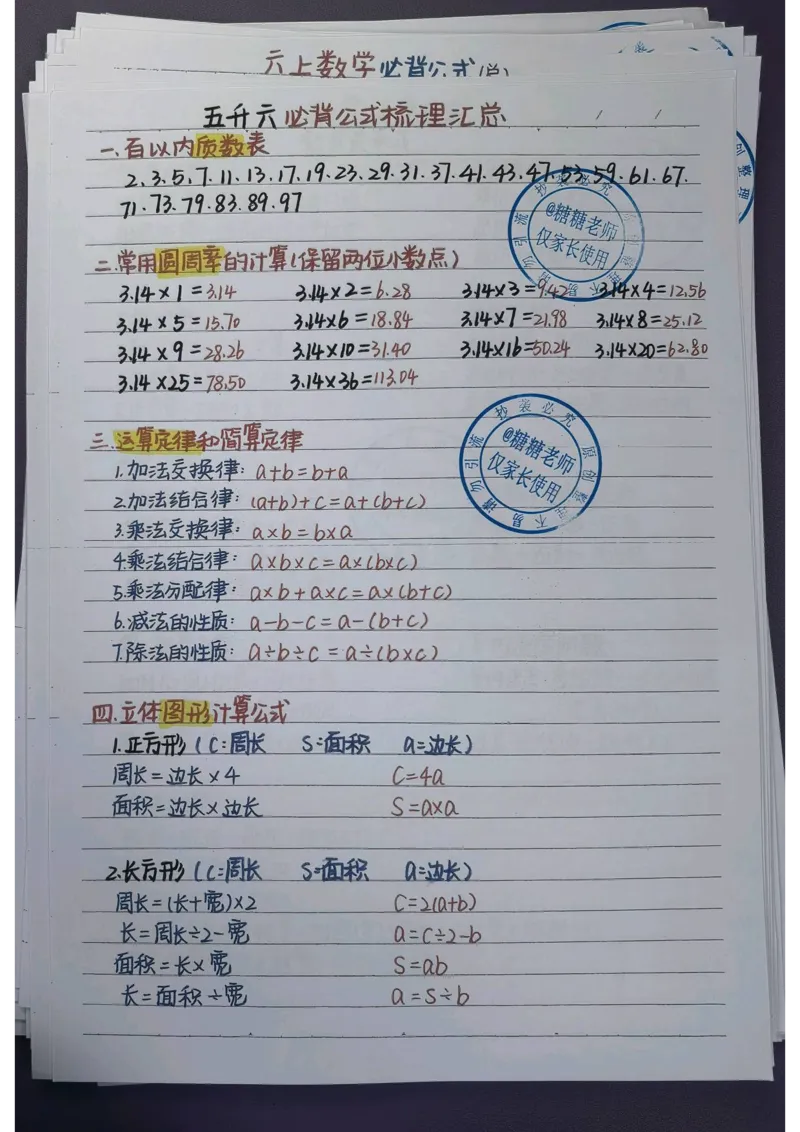 六上数学必背公式(总)
五升六必背公式梳理汇总 / /
一.百以内质数表
2.3.5.7.11.13.17.19.23.29.31.37.41.43.47.53.59.61.67.
71.73.79.83.89.97
二.常用圆周率的计算(保留两位小数点)
3.14×1=3.14 3.14×2=6.28 3.14×3=9.42 3.14×4=12.56
3.14×5=15.70 3.14×6=18.84 3.14×7=21.98 3.14×8=25.12
3.14×9=28.26 3.14×10=31.40 3.14×16=50.24 3.14×20=62.80
3.14×25=78.50 3.14×36=113.04
三.运算定律和简算定律
1.加法交换律: a+b=b+a
2.加法结合律: (a+b)+c=a+(b+c)
3.乘法交换律: a×b=b×a
4.乘法结合律: a×b×c=a×(b×c)
5.乘法分配律: a×b+a×c=a×(b+c)
6.减法的性质: a-b-c=a-(b+c)
7.除法的性质: a÷b÷c=a÷(b×c)
四.立体图形计算公式
1.正方形(C:周长 S=面积 a=边长)
周长=边长×4 C=4a
面积=边长×边长 S=a×a
2.长方形(C:周长 S=面积 a=边长)
周长=(长+宽)×2 C=2(a+b)
长=周长÷2-宽 a=c÷2-b
面积=长×宽 S=ab
长=面积÷宽 a=S÷b
抄袭必究
@糖糖老师
仅家长使用
请勿引流
原创整理不易
抄袭必究
@糖糖老师
仅家长使用
请勿引流
原创整理不易
整理